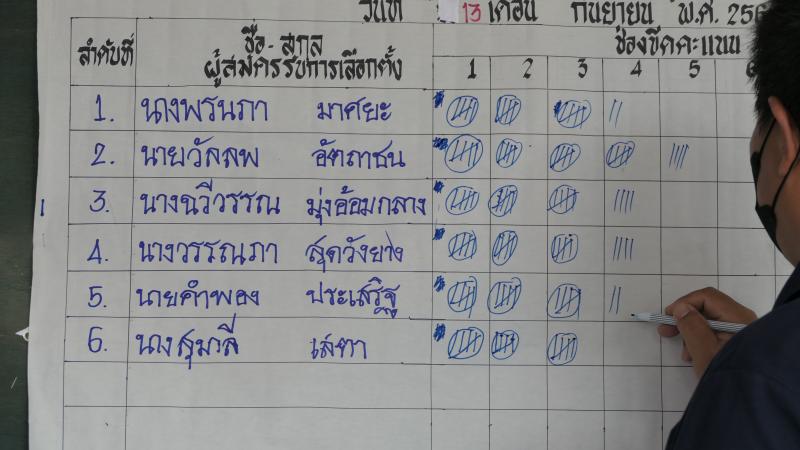 วันที่ 13 เดือน กันยายน พ.ศ. 256
ลำดับที่ ชื่อ - สกุล ช่องขีดคะแนน
ผู้สมัครรับการเลือกตั้ง 1 2 3 4 5 6
1. นางพรนภา มาศยะ
2. นายวัลลพ อัตถาชน
3. นางฉวีวรรณ มุ่งอ้อมกลาง
4. นางวรรณภา สุดวังยาง
5. นายคำพอง ประเสริฐ
6. นางสุมาลี เสตา